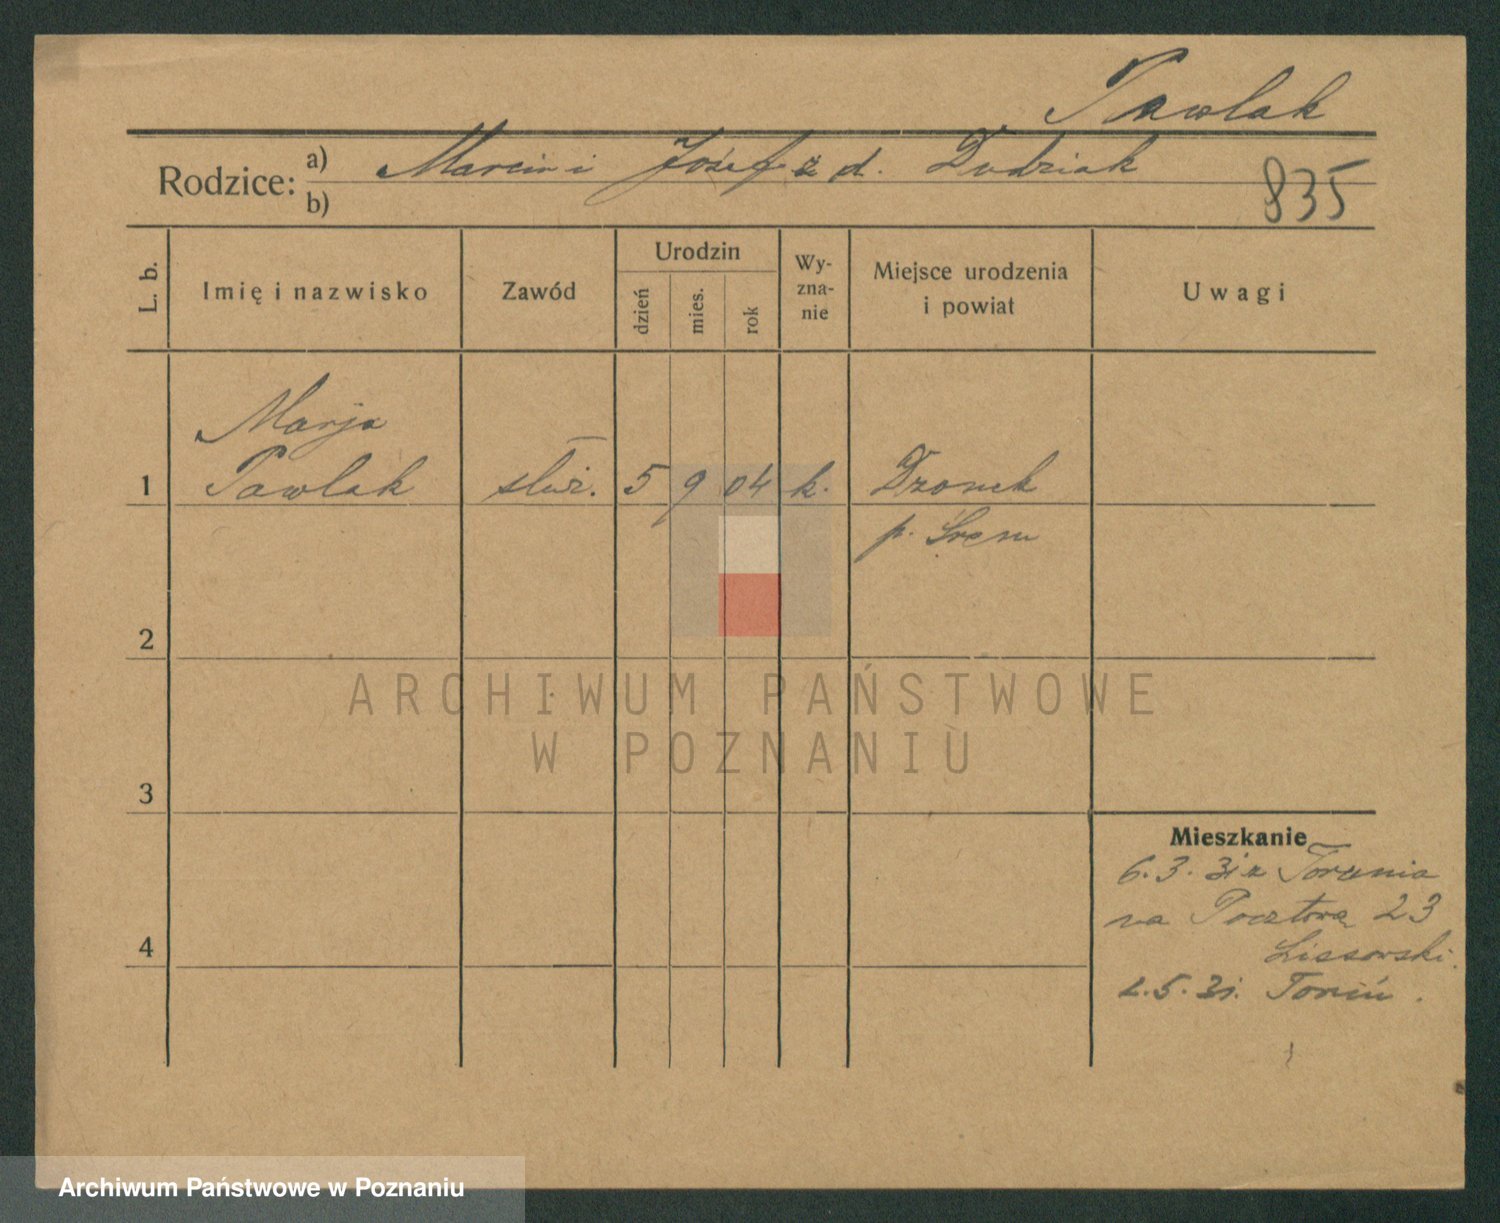 Pawlak
Rodzice: a) Marcin i Józefa z d. Dudziak
b)
835
L. b.
Imię i nazwisko
Zawód
Urodzin
dzień
mies.
rok
Wy-
zna-
nie
Miejsce urodzenia
i powiat
Uwagi
Marja
1 Pawlak służ. 5 9 04 k. Dronek
p. Śrem
2
3
4
Mieszkanie
6.3.31 z Torunia
na Pocztową 23
Lissowski.
1.5.31. Toruń.
ARCHIWUM PAŃSTWOWE
W POZNANIU
Archiwum Państwowe w Poznaniu